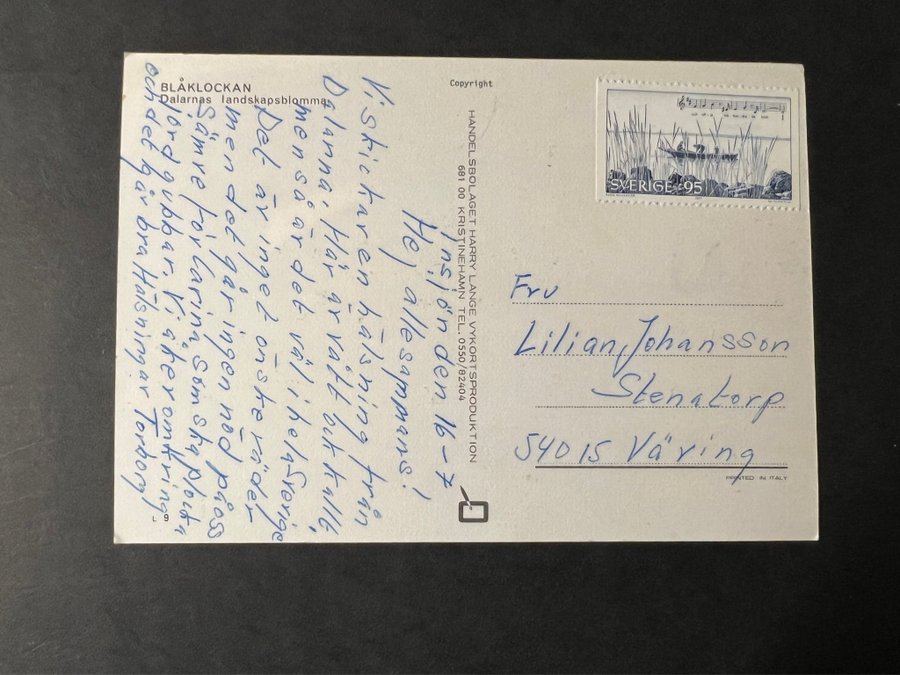 BLÅKLOCKAN
Dalarnas landskapsblomma
Copyright
Insjön den 16-7
Hej allesammans!
Vi skickar en hälsning från
Dalarna, här är vått och kallt
men så är det väl i hela Sverige
Det är inget önskeväder
men det går ingen nöd på oss
Sämre för Carina som ska plocka
jordgubbar. Vi åker omkring
och det går bra Hälsningar Torborg
L 9
HANDELSBOLAGET HARRY LANGE VYKORTSPRODUKTION
681 00 KRISTINEHAMN TEL. 0550/82404
SVERIGE 95
Fru
Lilian Johansson
Stenatorp
54015 Väring
PRINTED IN ITALY